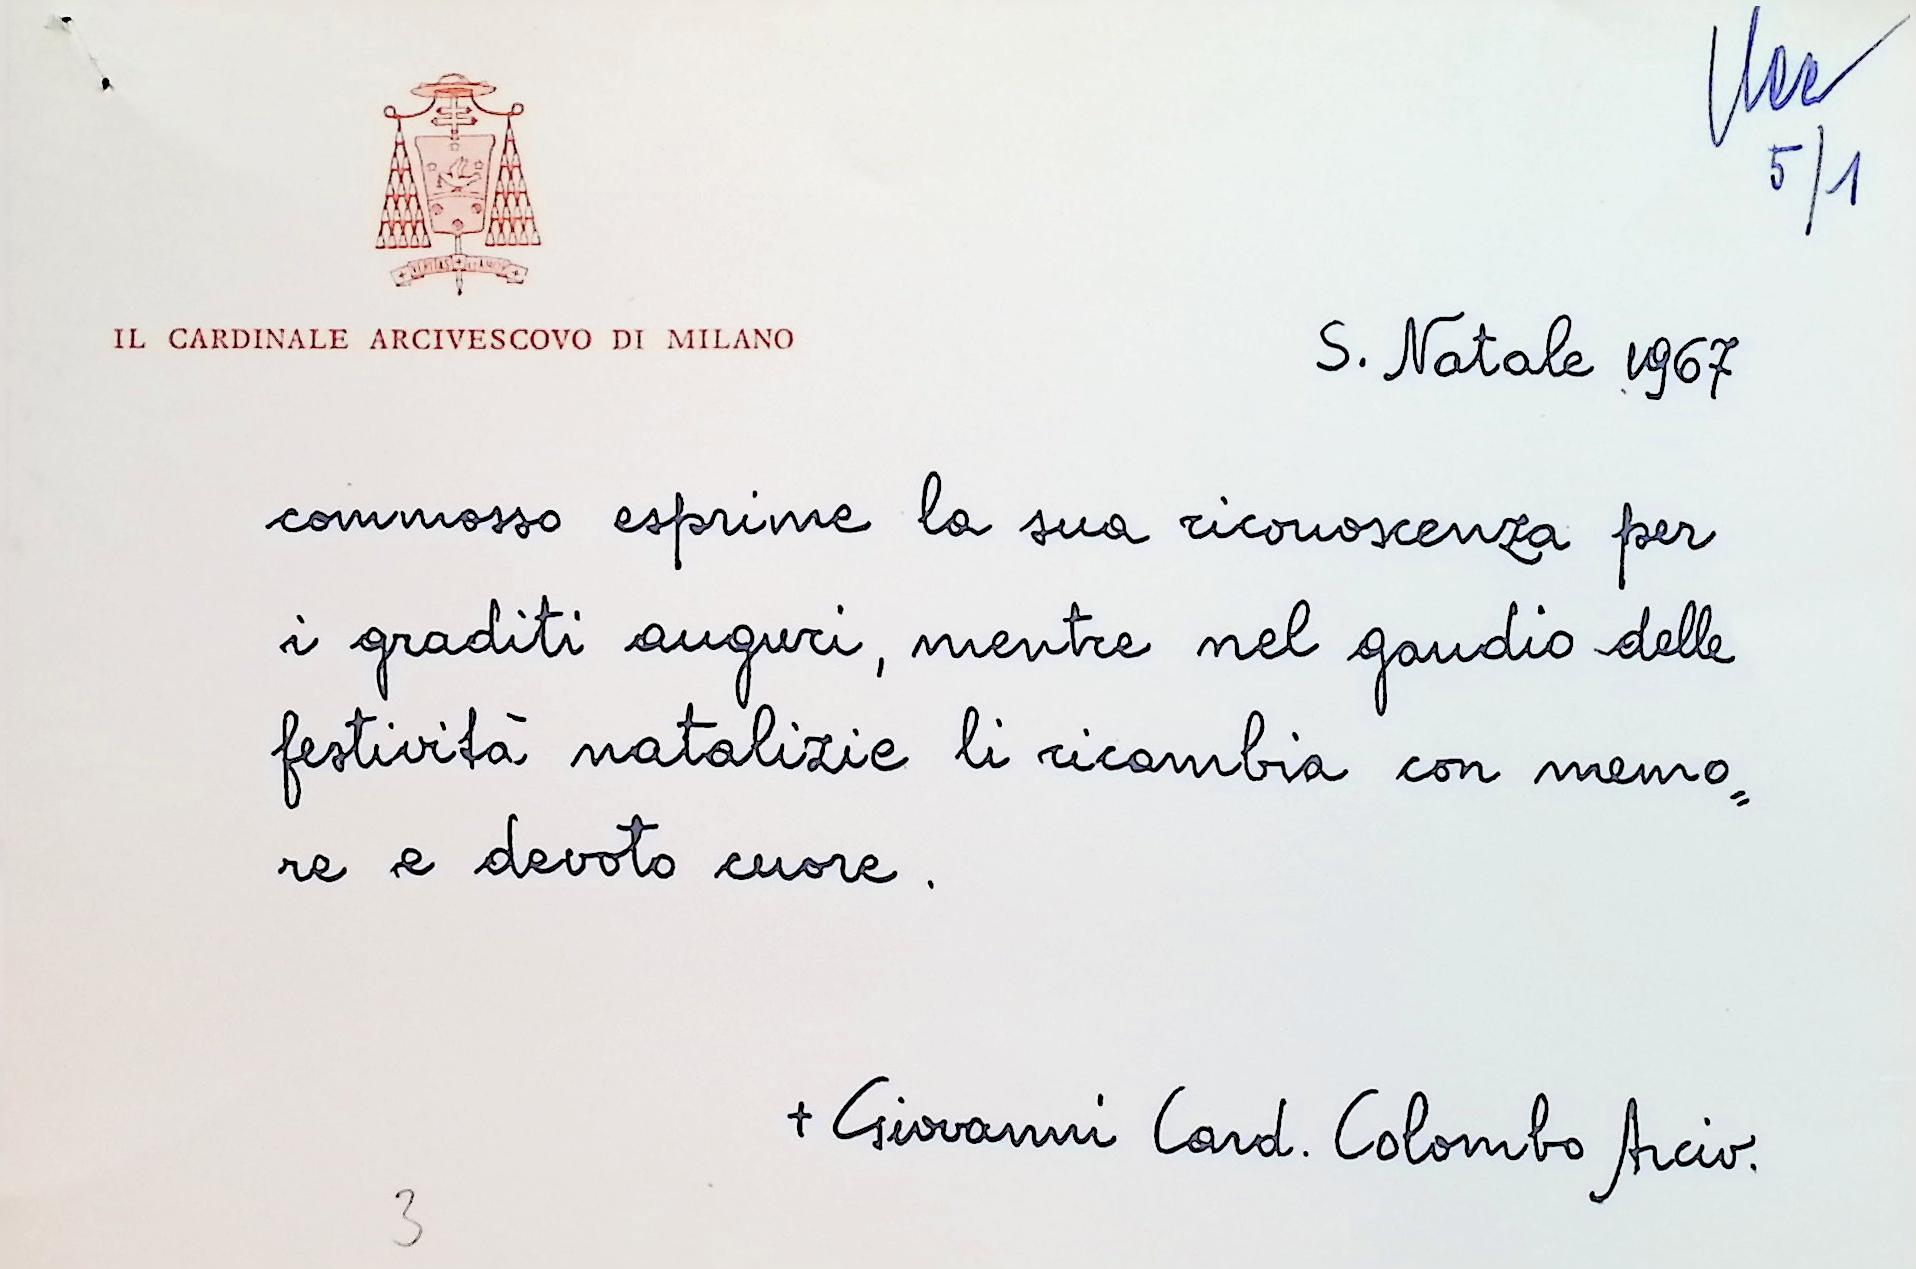 5/1
IL CARDINALE ARCIVESCOVO DI MILANO
S. Natale 1967
commosso esprime la sua riconoscenza per
i graditi auguri, mentre nel gaudio delle
festività natalizie li ricambia con memo=
re e devoto cuore.
+ Giovanni Card. Colombo Arciv.
3